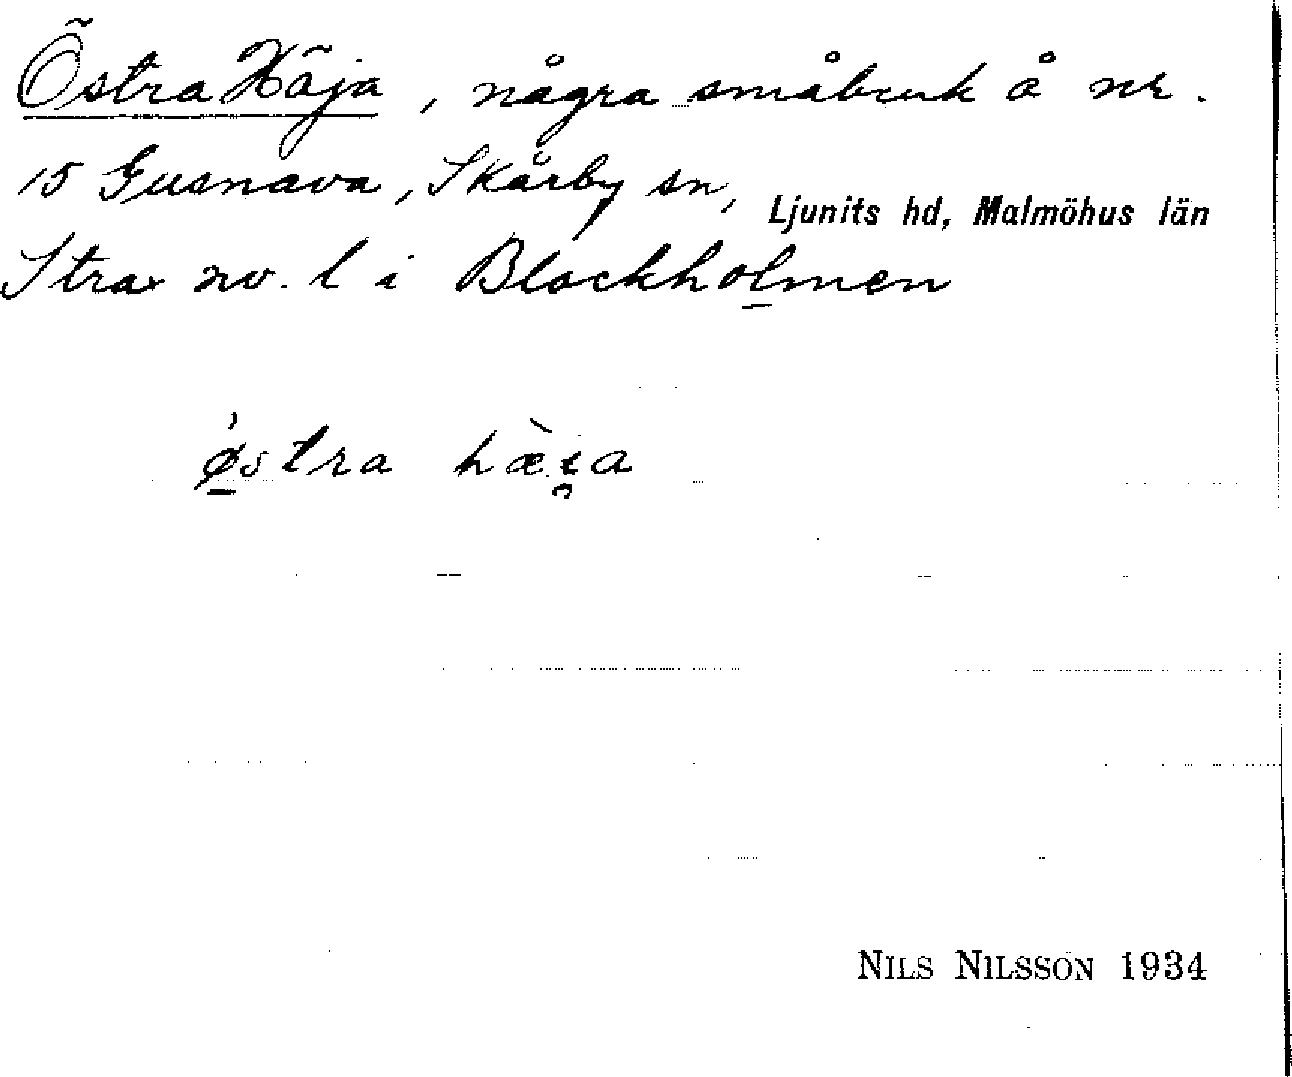 Östra Häja, några småbruk å nr.
15 Gusnava, Skårby sn, Ljunits hd, Malmöhus län
Strax nv. l i Blockholmen
østra hæi̯a
NILS NILSSON 1934